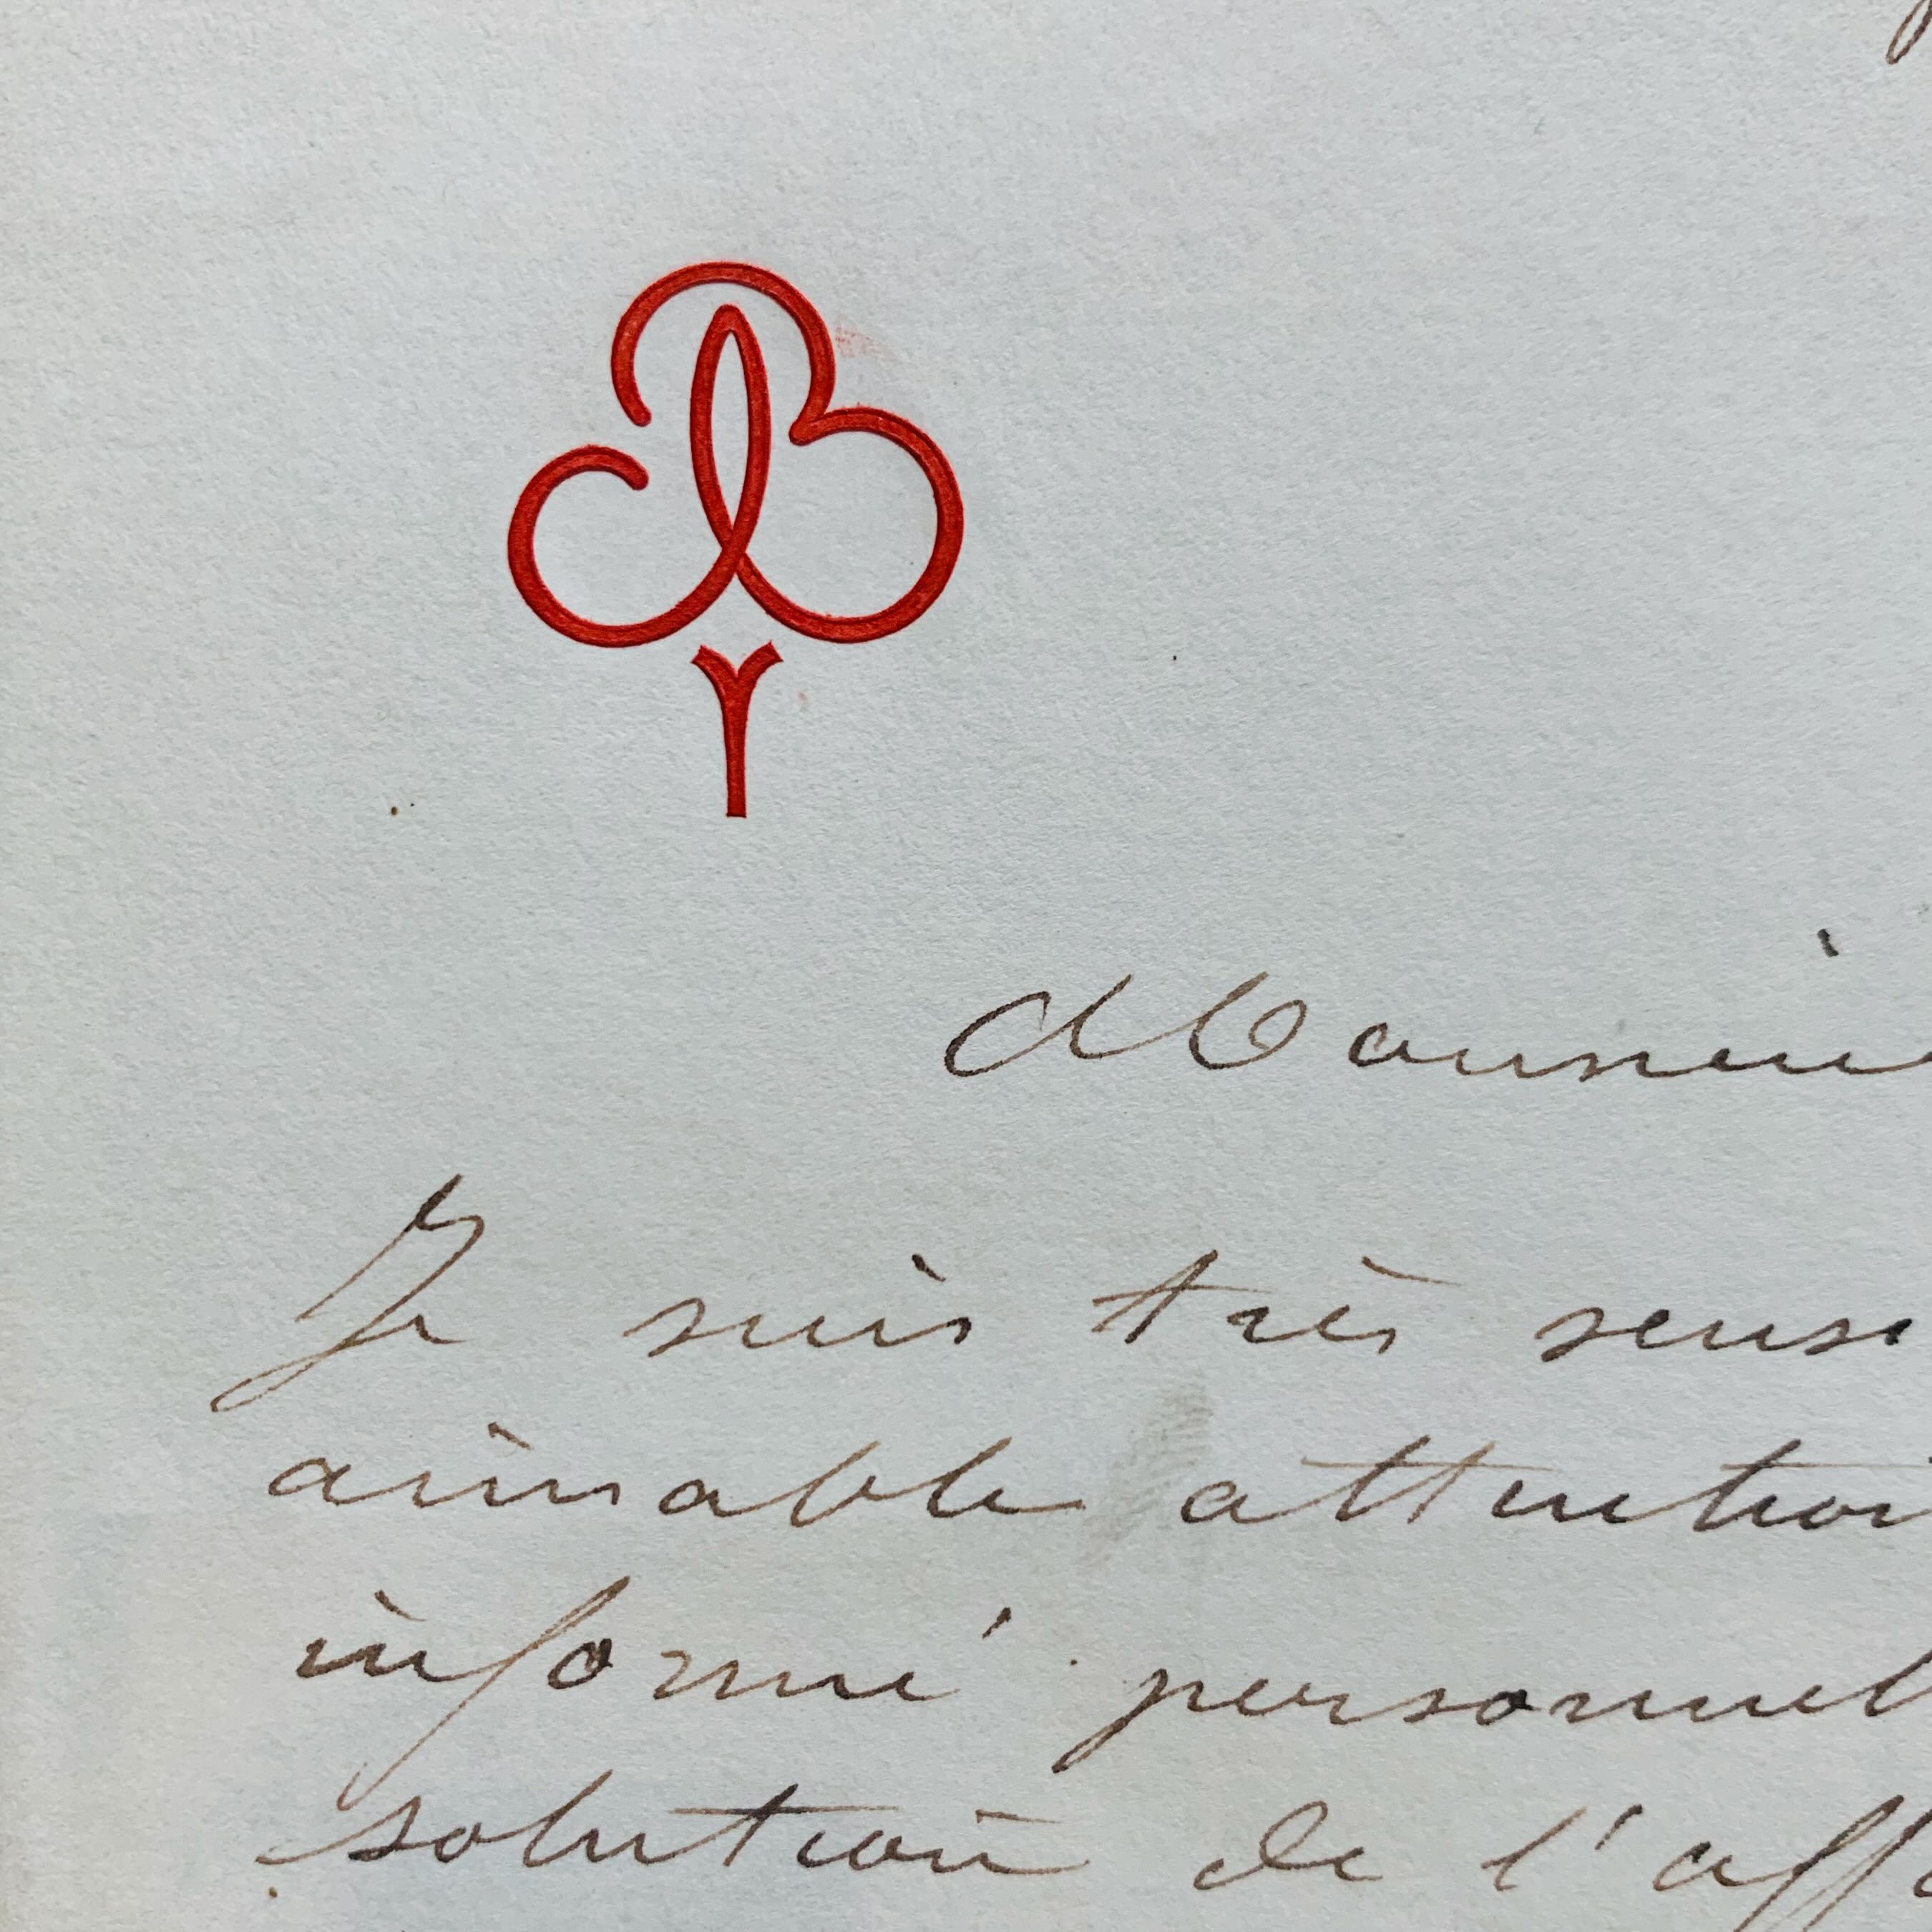 Monsieu
Je suis très sensi
aimable attention
informé personnel
solution de l'affa